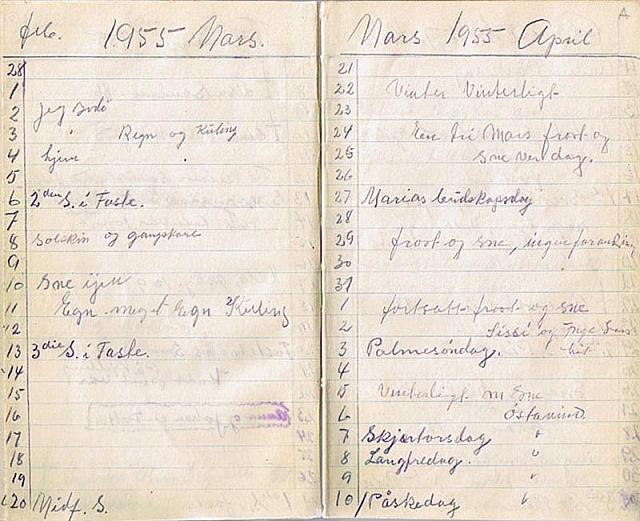 feb. 1955 Mars.
28
1
2 Jeg Bodö
3 Regn og Kuling
4 hjem
5
6 2den S. i Faste.
7
8 Solskin og gangskare
9
10 Sne ijen
11 Egn meget Egn Kuling
12
13 3die S. i Faste.
14
15
16
17
18
19
20 Midf. S.
Mars 1955 April
21
22 Vinter Vinterligt
23
24 Mars frost og
25 Sne ver dag.
26
27 Marias budskapsdag
28
29 frost og sne, ingen forandring
30
31
1 fortsatt frost og sne
2 Sissi og Inge
3 Palmesöndag. hit
4
5 Vinterligt m Sne
6 östanvind.
7 Skjærtorsdag "
8 Langfredag. "
9 "
10 Påskedag "